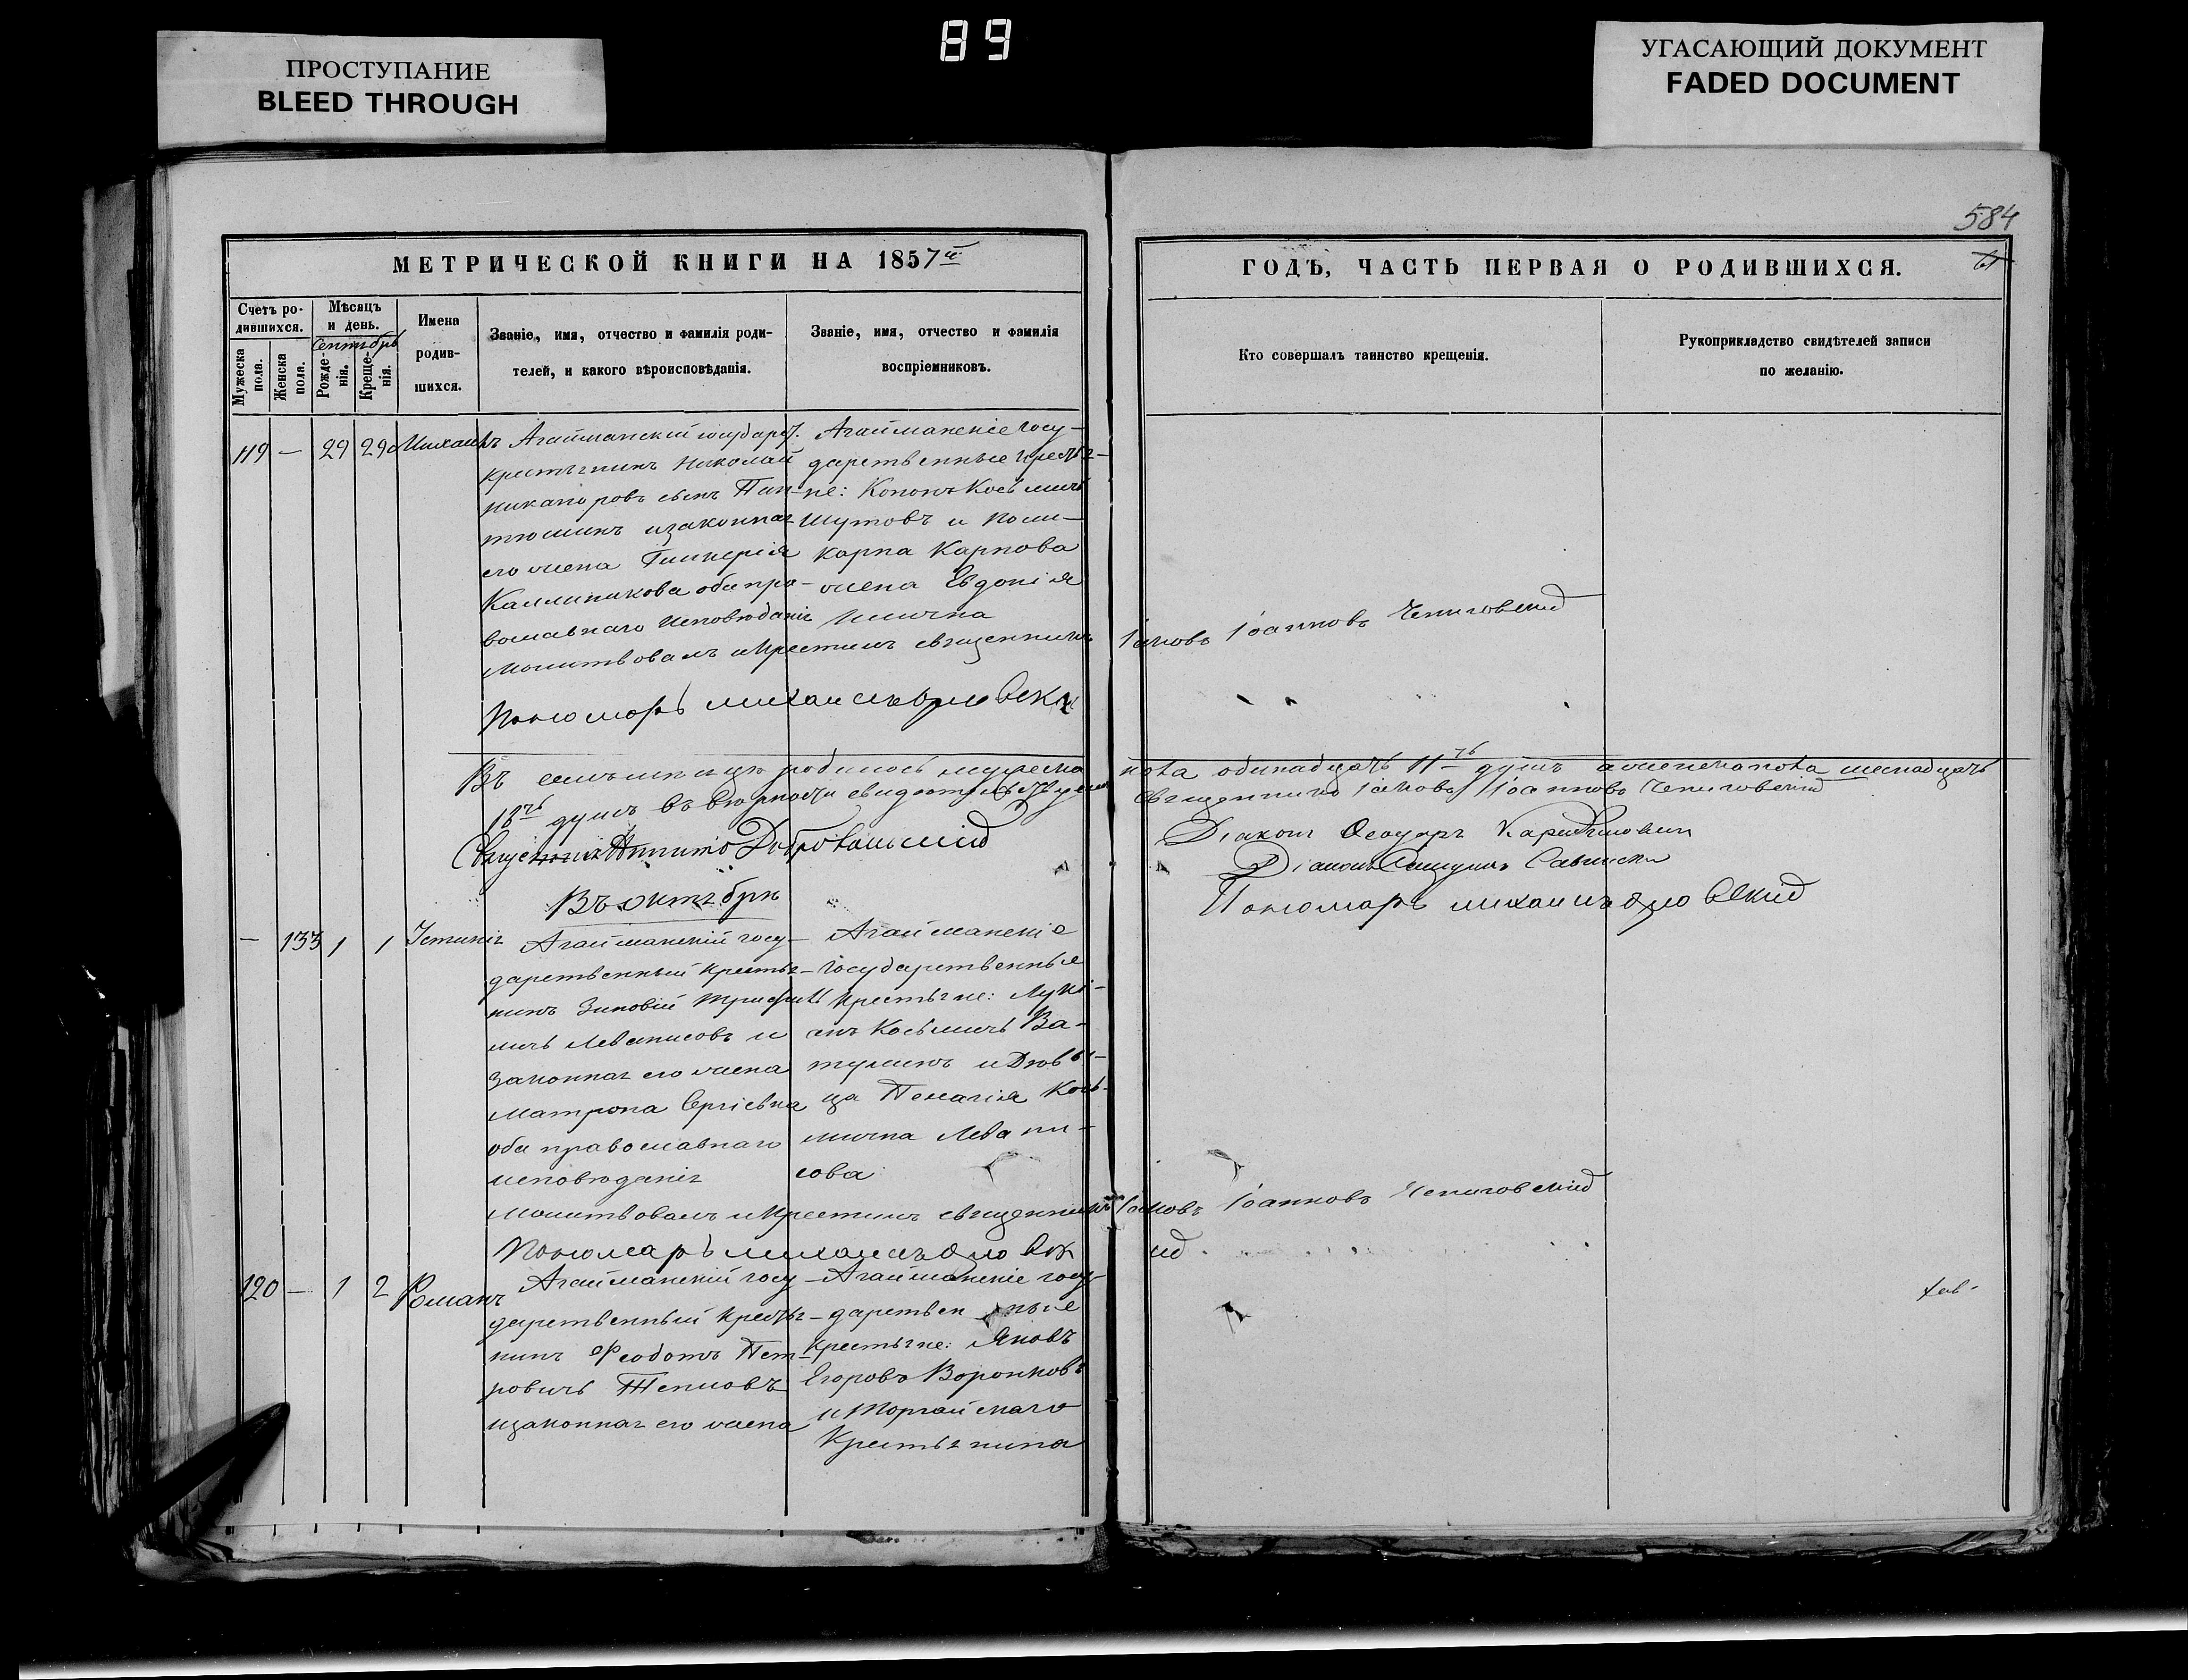 89
ПРОСТУПАНИЕ
BLEED THROUGH
УГАСАЮЩИЙ ДОКУМЕНТ
FADED DOCUMENT
584
МЕТРИЧЕСКОЙ КНИГИ НА 1857й
ГОДЪ, ЧАСТЬ ПЕРВАЯ О РОДИВШИХСЯ.
61
Счетъ родившихся.
Мужеска пола.
Женска пола.
Мѣсяцъ и день.
Сентябрь
Рожденія.
Крещенія.
Имена родившихся.
Званіе, имя, отчество и фамилія родителей, и какого вѣроисповѣданія.
Званіе, имя, отчество и фамилія воспріемниковъ.
Кто совершалъ таинство крещенія.
Рукоприкладство свидѣтелей записи по желанію.
119 — 29 29 Михаилъ
Агайманскій государст.
крестьянинъ Николай
Никаноровъ сынъ
и законная
его жена Гликерія
Каллиникова оба пра-
вославнаго исповѣданія
Агайманскіе госу-
дарственные крестья-
не: Кононъ Косьмичъ
Шутовъ и Поли-
карпа Карпова
жена Евдокія
Ильична
Молитвовалъ и крестилъ священникъ Іаковъ Іоанновъ Чепиговскій
Пономарь Михаилъ Орловскій
Въ семъ мѣсяцѣ родилось мужеска пола одинадцать 11ть душъ а женска пола
18ть душъ въ вѣрности свидетельствуемъ Священникъ Іаковъ Іоанновъ Чепиговскій
Священникъ Добровольскій
Діаконъ Ѳеодоръ
Діаконъ Савицкій
Пономарь Михаилъ Орловскій
Въ октябрѣ
— 133 1 1 Іустинія
Агайманскій госу-
дарственный крестья-
нинъ Зиновій Трифи-
личъ Леванисовъ и
законная его жена
Матрона Сергіевна
оба православнаго
исповѣданія
Агайманскіе
государственные
крестьяне: Лукі-
анъ Косьмичъ Ва-
тулинъ и Дѣви-
ца Пелагія Кось-
мична Левани-
сова
Молитвовалъ и крестилъ священникъ Іаковъ Іоанновъ Чепиговскій
Пономарь Михаилъ Орловскій
120 — 1 2 Романъ
Агайманскій госу-
дарственный крестья-
нинъ Феодотъ Пет-
ровичъ Тепловъ
и законная его жена
Агайманскіе госу-
дарственные
крестьяне: Яковъ
Егоровъ Воронковъ
и Торгайскаго
Крестьянина